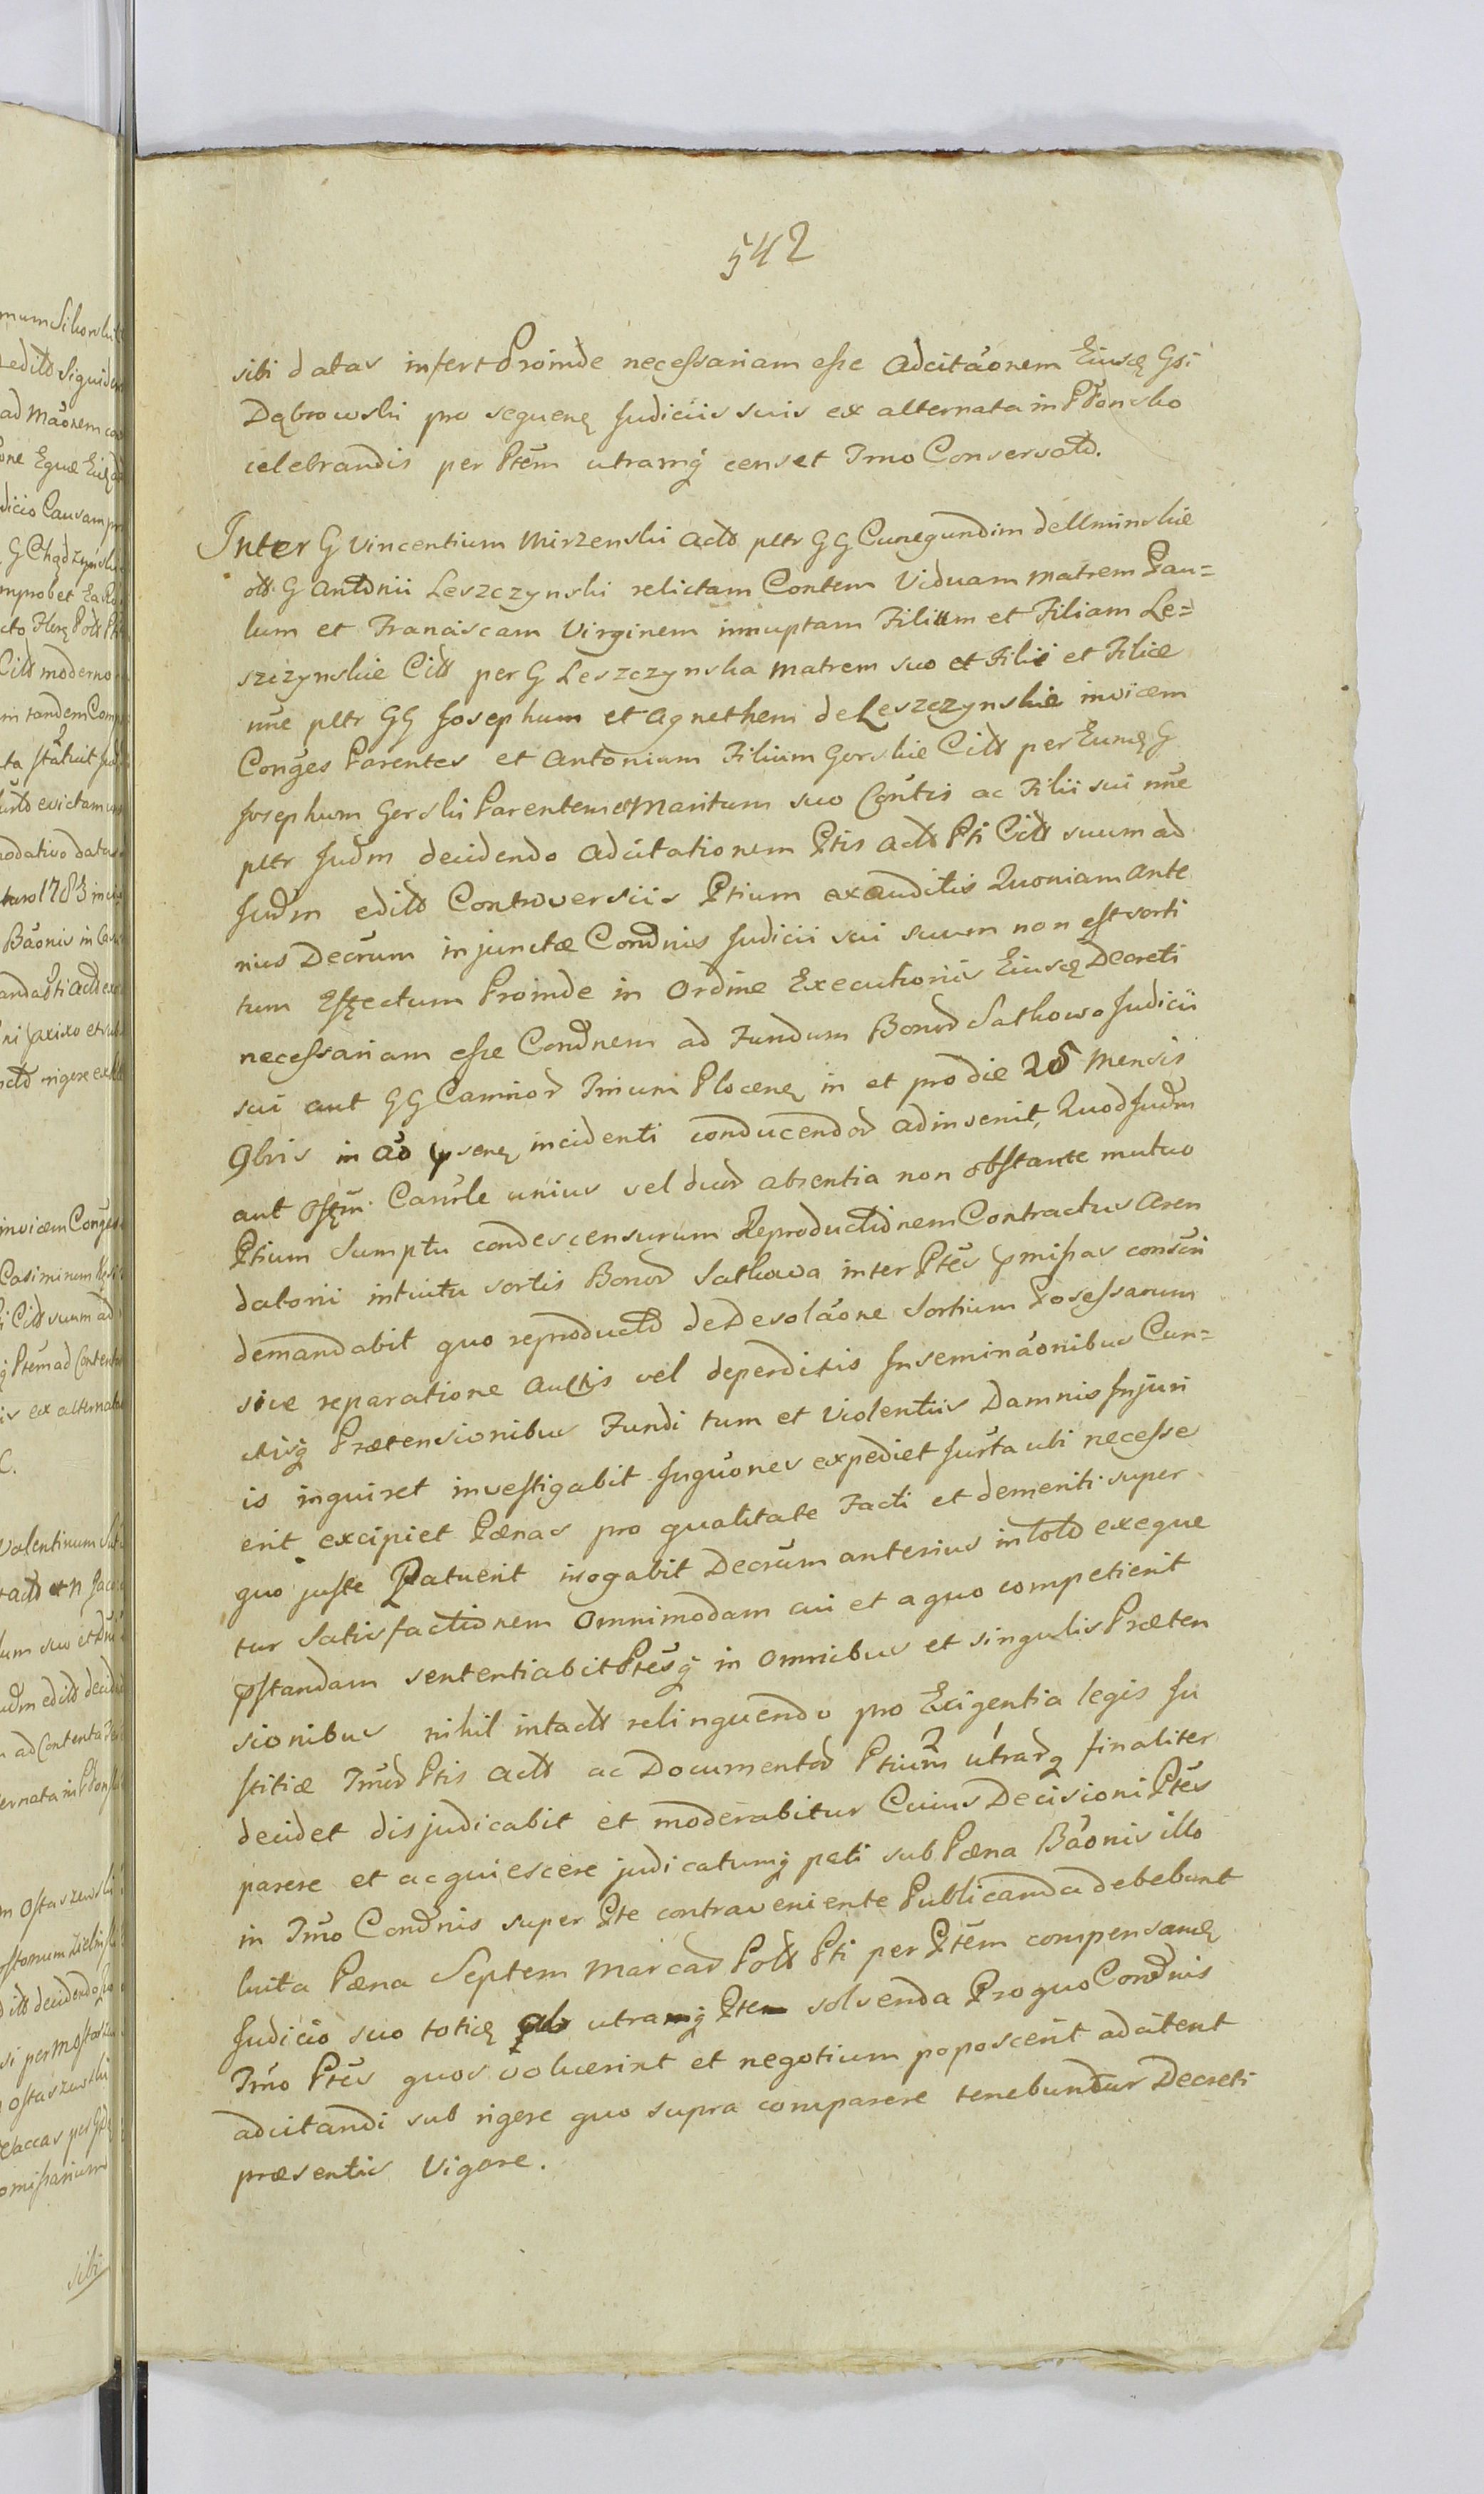 542
sibi datas infert Proinde necessariam esse adcitaonem Eiusq Gsi
Dąbrowski pro sequenq Judiciis suis ex alternata in Płonsko
celebrandis per Ptem utramq censet Tmo Conservato.
Inter G Vincentium Mirzenski Act pltr GG Cunegundim de Ilminskie
olt G Antonii Leszczynski relictam Contem Viduam Matrem Pau=
lum et Franciscam Virginem innuptam Filium et Filiam Le=
szczynskie Citt per G Leszczynska Matrem suo et Filii et Filiæ
nne pltr GG Josephum et Agnethem de Leszczynskie invicem
Conges Parentes et Antonium Filium Gorskie Citt per Eumq G
Josephum Gorski Parentem et Maritum suo Contis ac Filii sui nne
pltr Judm decidendo Adcitationem Ptis Act Pti Citt suum ad
Judm edito Controversiis Ptium exauditis Quoniam Ante
rius Decrum injunctæ Condnis Judicii sui suum non est sorti
tum Effectum Proinde in Ordine Executionis Eiusq Decreti
necessariam esse Condnem ad Fundum Bonor Satkowo Judicii
sui aut GG Camrior Trium Plocenq in et pro die 28 Mensis
9bris in Ao psenq incidenti conducendor adinvenit, Quod Judm
aut Offm Camrle unius vel duor absentia non obstante mutuo
Ptium Sumptu condescensurum Reproductionem Contractus Aren
datorii intuitu sortis Bonor Satkowa inter Ptes pmissas conscri
demandabit quo reproducto de Desolaone Sortium Possessarum
sive reparatione Auctis vel deperditis Inseminaonibus Cun=
ctisq Prætensionibus Fundi tum et Violentiis Damnis Injuri
is inquiret investigabit Inquones expediet Jurta ubi necesse
erit excipiet Pœnas pro qualitate Facti et demeriti super
quo juste Patuerit irogabit Decrum anterius in toto exeque
tur Satisfactionem Omnimodam cui et a quo competierit
pstandam sententiabit Ptesq in Omnibus et singulis Præten
sionibus nihil intactt relinquendo pro Exigentia legis Ju
stitiæ Juror Ptis Act ac Documentor Ptium utrarq finaliter
decidet disjudicabit et moderabitur Cuius Decisioni Ptes
parere et acquiescere judicatumq pati sub Pœna Bãonis illo
in Tmo Condnis super Pte contraveniente Publicanda debebunt
luita Pœna Septem Marcar Polt Pti per Ptem compensandq
Judicio suo totieq ab utramq Ptem solvenda Pro quo Condnis
Tmo Ptes quos voluerint et negotium poposcerit adcitent
adcitandi sub rigore quo supra comparere tenebuntur Decreti
præsentis Vigore.